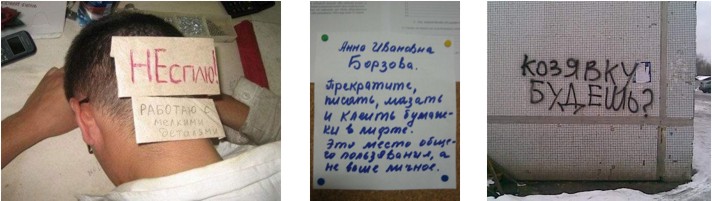 НЕсплю!
РАБОТАЮ с
мелкими
деталями
Анна Ивановна
Борзова.
Прекратите,
писать, мазать
и клеить бумаж-
ки в лифте.
Это место общe-
го пользявания, а
не ваше личное.
КОЗЯВКУ
БУДЕШЬ?